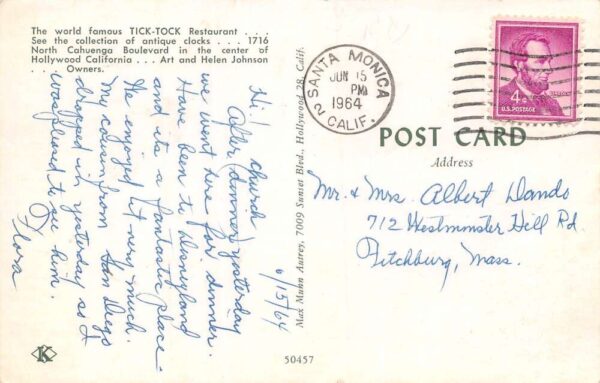 The world famous TICK-TOCK Restaurant . . .
See the collection of antique clocks . . . 1716
North Cahuenga Boulevard in the center of
Hollywood California . . . Art and Helen Johnson
. . . Owners.
Hi,
church
After (dinner) yesterday
we went here for dinner.
Have been to Disneyland
and its a fantastic place -
We enjoyed it very much.
My cousin from San Diego
dropped in yesterday so I
was pleased to see him.
Flora
6/15/64
Max Muhn Autrey, 7009 Sunset Blvd., Hollywood 28, Calif.
SANTA MONICA
2 CALIF.
JUN 15
PM
1964
LINCOLN
4¢
U.S. POSTAGE
POST CARD
Address
Mr. & Mrs. Albert Dando
712 Westminster Hill Rd.
Fitchburg, Mass.
K
50457